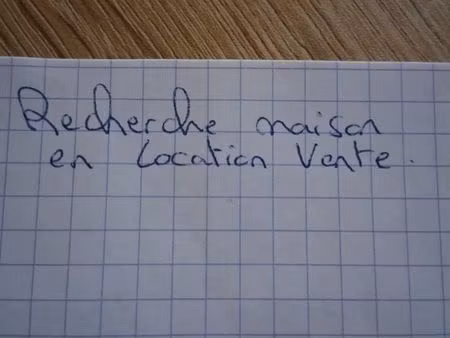 Recherche maison
en Location Vente.